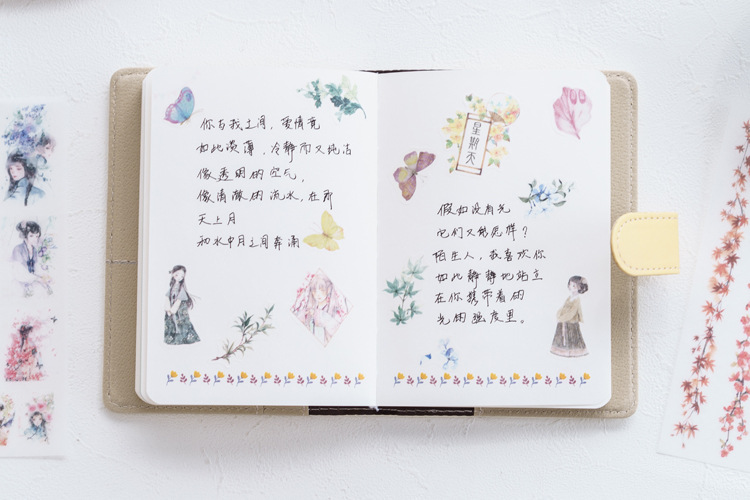 你与我之间，爱情竟
如此淡薄，冷静而又纯洁
像透明的空气，
像清澈的流水，在那
天上月
和水中月之间奔涌
星期天
假如没有光
它们又能怎样？
陌生人，我喜欢你
如此静静地站立
在你携带着的
光的强度里。